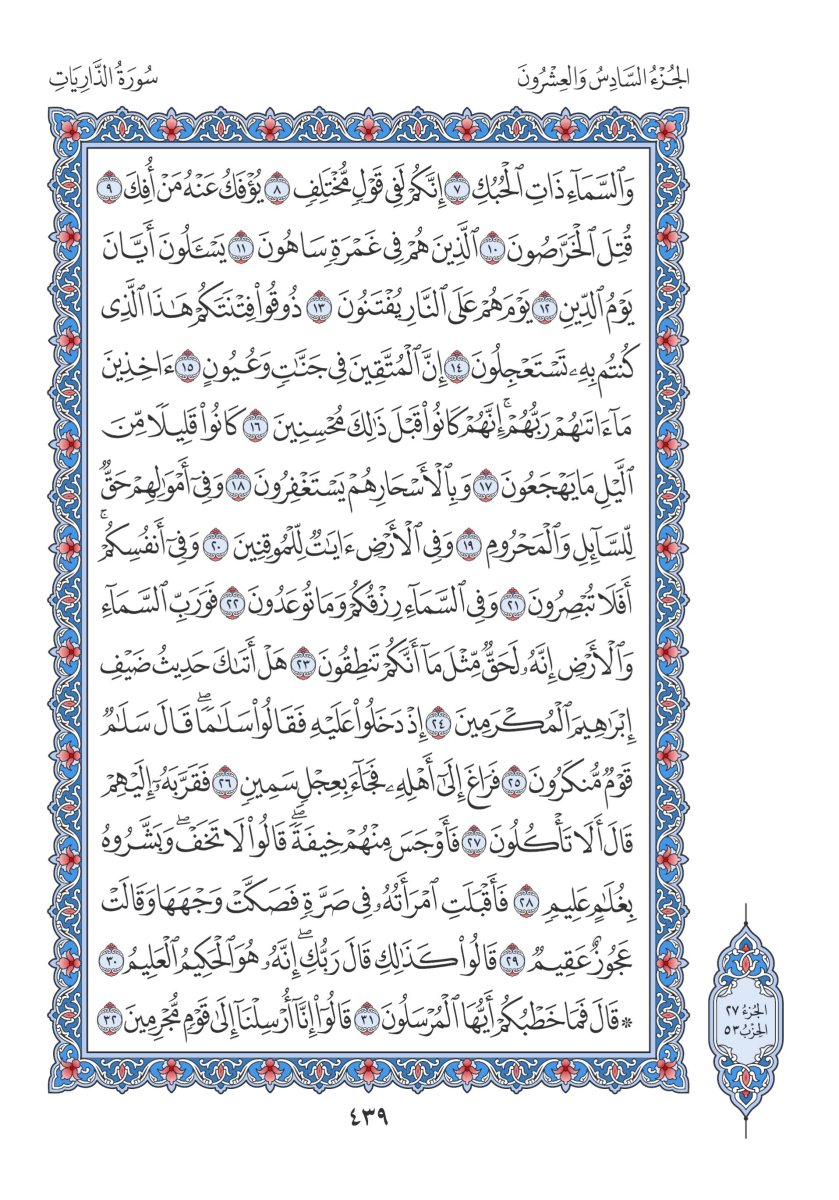 الجُزْءُ السَّادِسُ وَالعِشْرُونَ
سُورَةُ الذَّارِيَاتِ
وَٱلسَّمَآءِ ذَاتِ ٱلْحُبُكِ ٧ إِنَّكُمْ لَفِى قَوْلٍ مُّخْتَلِفٍ ٨ يُؤْفَكُ عَنْهُ مَنْ أُفِكَ ٩
قُتِلَ ٱلْخَرَّٰصُونَ ١٠ ٱلَّذِينَ هُمْ فِى غَمْرَةٍ سَاهُونَ ١١ يَسْـَٔلُونَ أَيَّانَ
يَوْمُ ٱلدِّينِ ١٢ يَوْمَ هُمْ عَلَى ٱلنَّارِ يُفْتَنُونَ ١٣ ذُوقُوا۟ فِتْنَتَكُمْ هَـٰذَا ٱلَّذِى
كُنتُم بِهِۦ تَسْتَعْجِلُونَ ١٤ إِنَّ ٱلْمُتَّقِينَ فِى جَنَّـٰتٍ وَعُيُونٍ ١٥ ءَاخِذِينَ
مَآ ءَاتَىٰهُمْ رَبُّهُمْ ۚ إِنَّهُمْ كَانُوا۟ قَبْلَ ذَٰلِكَ مُحْسِنِينَ ١٦ كَانُوا۟ قَلِيلًا مِّنَ
ٱلَّيْلِ مَا يَهْجَعُونَ ١٧ وَبِٱلْأَسْحَارِ هُمْ يَسْتَغْفِرُونَ ١٨ وَفِىٓ أَمْوَٰلِهِمْ حَقٌّ
لِّلسَّآئِلِ وَٱلْمَحْرُومِ ١٩ وَفِى ٱلْأَرْضِ ءَايَـٰتٌ لِّلْمُوقِنِينَ ٢٠ وَفِىٓ أَنفُسِكُمْ ۚ
أَفَلَا تُبْصِرُونَ ٢١ وَفِى ٱلسَّمَآءِ رِزْقُكُمْ وَمَا تُوعَدُونَ ٢٢ فَوَرَبِّ ٱلسَّمَآءِ
وَٱلْأَرْضِ إِنَّهُۥ لَحَقٌّ مِّثْلَ مَآ أَنَّكُمْ تَنطِقُونَ ٢٣ هَلْ أَتَىٰكَ حَدِيثُ ضَيْفِ
إِبْرَٰهِيمَ ٱلْمُكْرَمِينَ ٢٤ إِذْ دَخَلُوا۟ عَلَيْهِ فَقَالُوا۟ سَلَـٰمًا ۖ قَالَ سَلَـٰمٌ
قَوْمٌ مُّنكَرُونَ ٢٥ فَرَاغَ إِلَىٰٓ أَهْلِهِۦ فَجَآءَ بِعِجْلٍ سَمِينٍ ٢٦ فَقَرَّبَهُۥٓ إِلَيْهِمْ
قَالَ أَلَا تَأْكُلُونَ ٢٧ فَأَوْجَسَ مِنْهُمْ خِيفَةً ۖ قَالُوا۟ لَا تَخَفْ ۖ وَبَشَّرُوهُ
بِغُلَـٰمٍ عَلِيمٍ ٢٨ فَأَقْبَلَتِ ٱمْرَأَتُهُۥ فِى صَرَّةٍ فَصَكَّتْ وَجْهَهَا وَقَالَتْ
عَجُوزٌ عَقِيمٌ ٢٩ قَالُوا۟ كَذَٰلِكِ قَالَ رَبُّكِ ۖ إِنَّهُۥ هُوَ ٱلْحَكِيمُ ٱلْعَلِيمُ ٣٠
۞ قَالَ فَمَا خَطْبُكُمْ أَيُّهَا ٱلْمُرْسَلُونَ ٣١ قَالُوٓا۟ إِنَّآ أُرْسِلْنَآ إِلَىٰ قَوْمٍ مُّجْرِمِينَ ٣٢
الجُزْءُ ٢٧
الحِزْبُ ٥٣
٤٣٩